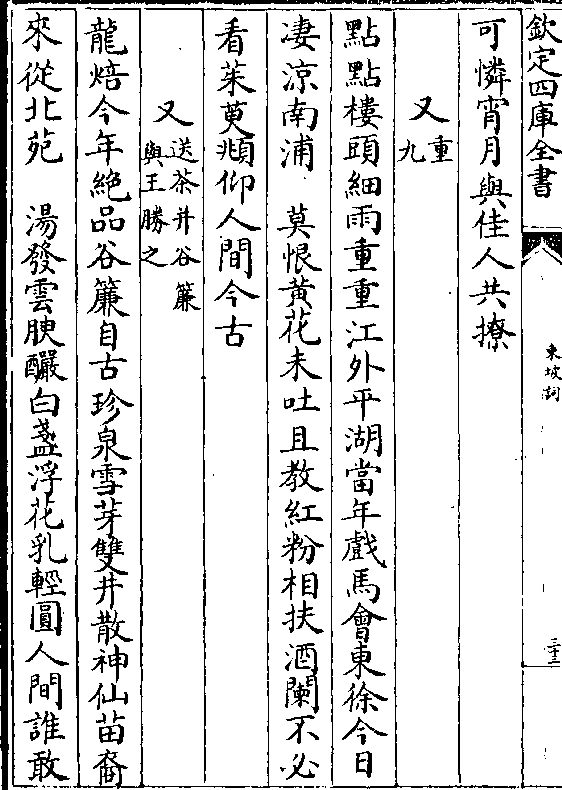 欽定四庫全書
東坡詞
三十三
可憐宵月與佳人共撩
又重九
點點樓頭細雨重重江外平湖當年戲馬會東徐今日
淒涼南浦　莫恨黃花未吐且教紅粉相扶酒闌不必
看茱萸頫仰人間今古
又送茶并谷簾與王勝之
龍焙今年絶品谷簾自古珍泉雪芽雙井散神仙苗裔
來從北苑　湯發雲腴釅白盞浮花乳輕圓人間誰敢